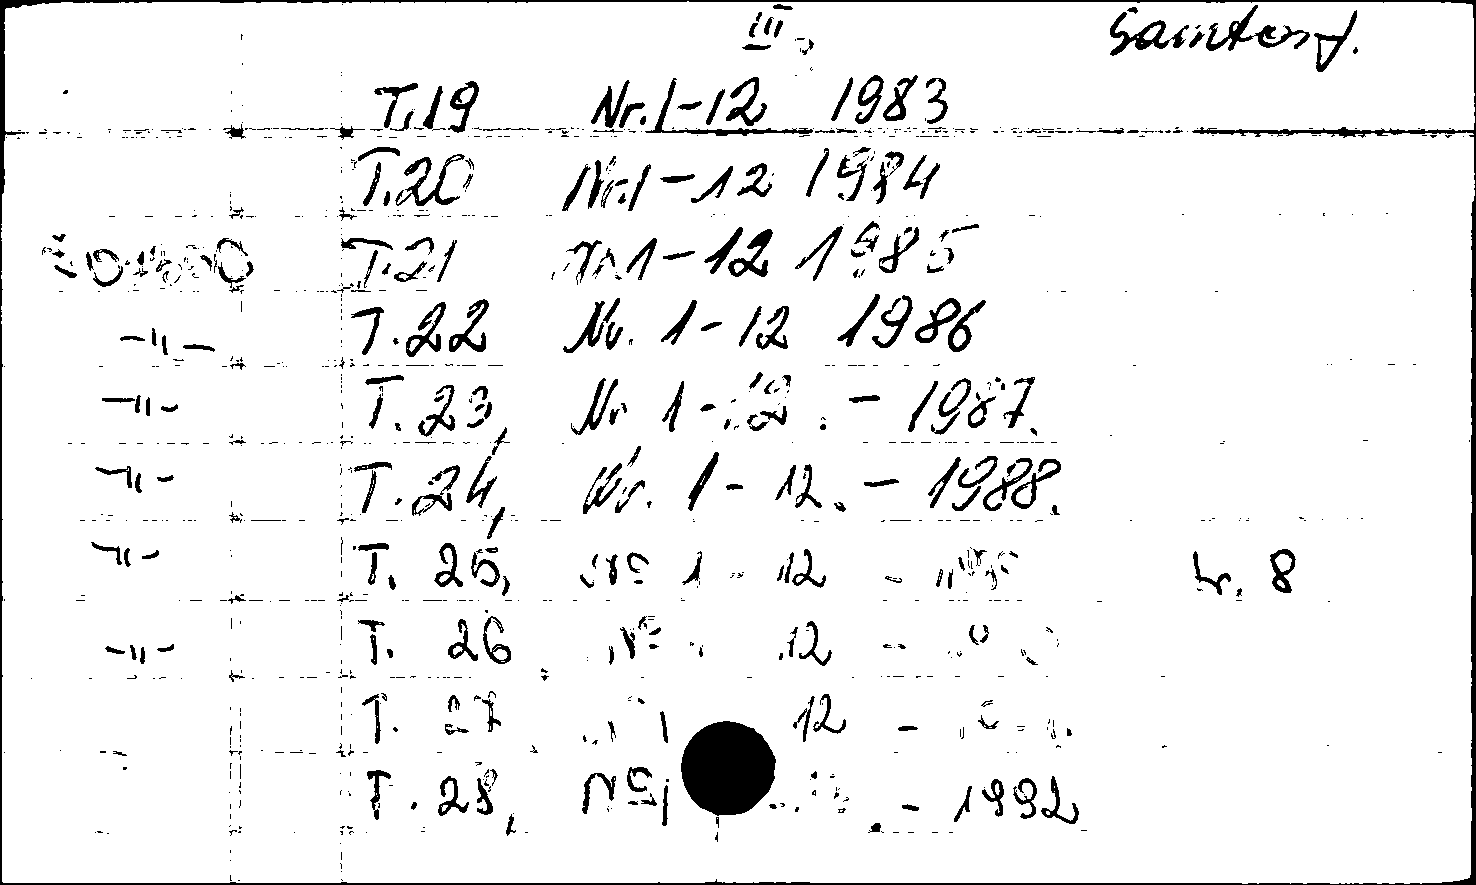 III
T.19 Nr.1-12 1983
T.20 Nr.1-12 1984
T.21 Nr.1-12 1985
-"- T.22 Nr. 1-12 1986
-"- T.23, Nr 1-12. - 1987.
-"- T.24, Nr. 1-12. - 1988.
-"- T. 25, № 1-12 - h. 8
-"- T. 26 № 12 -
T. 27 12 -
T. 28, № 1 - 1992